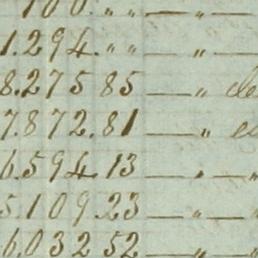 100. " " — " —
1.294. " " — " —
8.275 85 — " de
7.872.81 — " es
6.594.13 — " — "
5.109.23 — " — "
6.032 52 — " — "